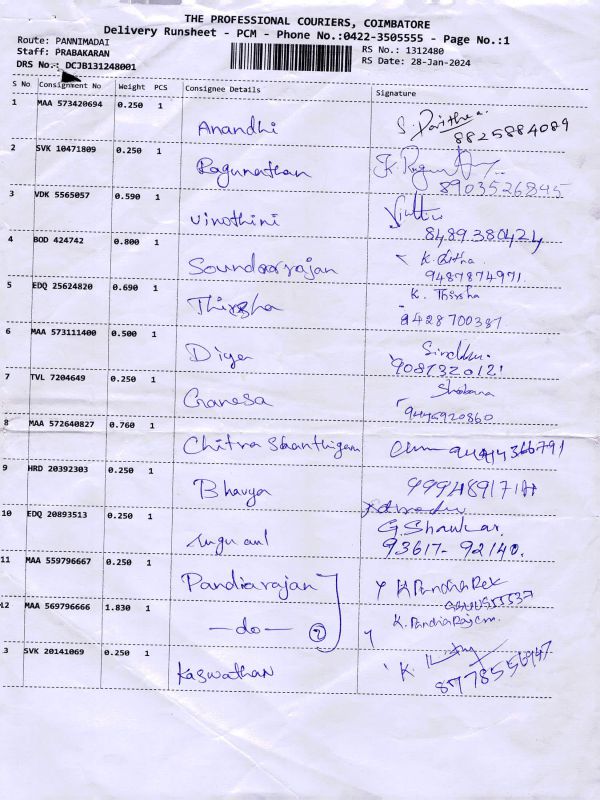 THE PROFESSIONAL COURIERS, COIMBATORE
Delivery Runsheet - PCM - Phone No.:0422-3505555 - Page No.:1
Route: PANNIMADAI
Staff: PRABAKARAN
DRS No.: DCJB131248001
RS No.: 1312480
RS Date: 28-Jan-2024
S No Consignment No Weight PCS Consignee Details Signature
1 MAA 573420694 0.250 1 Anandhi
8825884089
2 SVK 10471809 0.250 1 Ragunathan
8903526845
3 VDK 5565057 0.590 1 Vinothini
8489380424
4 BOD 424742 0.800 1 Soundararajan
9487874971
5 EDQ 25624820 0.690 1 Thirsha K. Thirsha
9428700387
6 MAA 573111400 0.500 1
9087320121
7 TVL 7204649 0.250 1 Ganesa Shobana
9445920860
8 MAA 572640827 0.760 1 Chitra
9 HRD 20392303 0.250 1 Bhavya
10 EDQ 20893513 0.250 1 G. Shankar.
93617-92140.
11 MAA 559796667 0.250 1 Pandiarajan
12 MAA 569796666 1.830 1 —do— 2
3 SVK 20141069 0.250 1 Kaswathan K.
8778556947